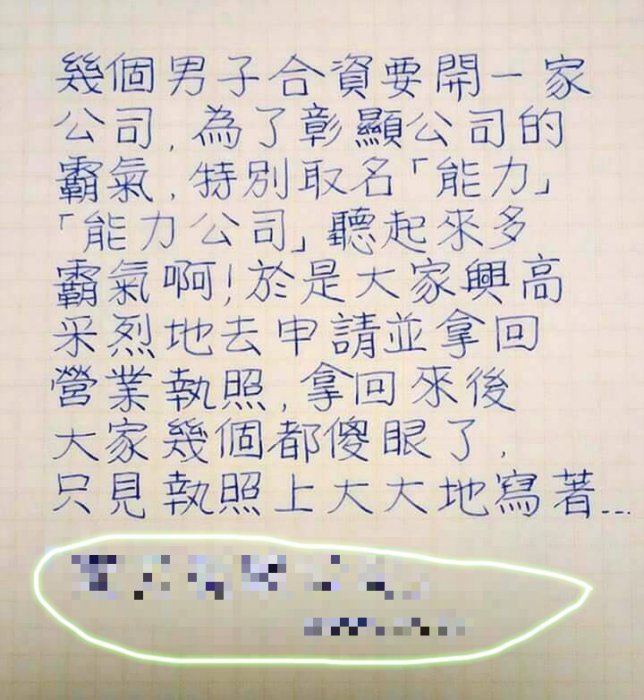 幾個男子合資要開一家
公司,為了彰顯公司的
霸氣,特別取名「能力」
「能力公司」聽起來多
霸氣啊!於是大家興高
采烈地去申請並拿回
營業執照,拿回來後
大家幾個都傻眼了,
只見執照上大大地寫著...